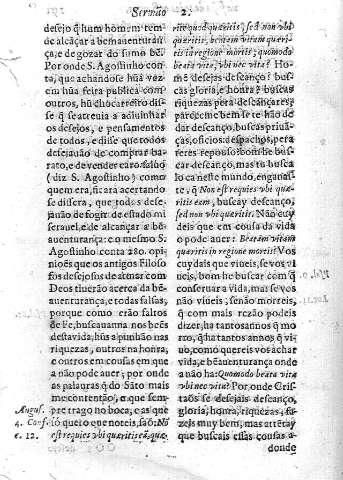 Sermão 2.
desejo q̃ hum homem tem
de alcãçar a bemauenturan-
ça, e de gozar do sũmo bẽ.
Por onde S. Agostinho con-
ta, que achandose hũa vez
em hũa feira publica com
outros, hũ chocarreiro dis-
se q̃ se atreuia a adiuinhar
os desejos, e pensamentos
de todos, e disse que todos
desejauão de comprar ba-
rato, e de vender caro. &
( diz S. Agostinho ) como
quem era, ficara acertando
se dissera, que todos dese-
jauão de fogir de estado mi
serauel, e de alcançar a bẽ-
auenturança: e o mesmo S.
Agostinho conta 280. opi-
niões que os antigos Filoso
fos desejosos de atinar com
Deos tiuerão acerca da bẽ-
auenturança, e todas falsas,
porque como erão faltos
de Fe, buscauanna nos beẽs
desta vida, hũs a punhão nas
riquezas, outros na honra,
e outros em cousas em que
a não pode auer; por onde
as palauras q̃ do Sãto mais
me contentão, e que sem-
Augus. pre trago no boca, e as que
4. Conf. sò quero que noteis, saõ: No
c. 12. est requies vbi quæritis eã, que
rite quod quæritis, sed non vbi
quæritis, beatam vitam quæri-
tis in regione mortis; quomodo
beata vita, vbi nec vita? Ho-
mẽ desejas descanço? buscas
gloria, e honra? buscas
riquezas pera descançares?
pareceme bem se te hão de
dar descanço, buscas priuã-
ças, oficios, despachos, pera
teres repouso? com bem bus
car descanço, mas tu busca
lo ca neste mundo, enganas
te, q̃ Non est requies vbi quæ-
ritis eam, buscay descanço,
sed non vbi quæritis. Não cuy
deis que em cousa da vida
o pode auer: Beatam vitam
quæritis in regione mortis? Vos
cuydais que viueis, se vos vi
ueis, bom he buscar com q̃
conseruar a vida, mas se vos
não viueis, senão morreis,
q̃ com mais rezão podeis
dizer, ha tantos annos q̃ mo
rro, q̃ ha tantos annos q̃ vi-
uo, como quereis vos achar
vida, e bẽauenturança onde
a não ha: Quomodo beata vita
vbi nec vita? Por onde Cris-
tãos se desejais descanço,
gloria, honra, riquezas, fa-
zeis muy bem, mas attétay
que buscais essas cousas a-
donde